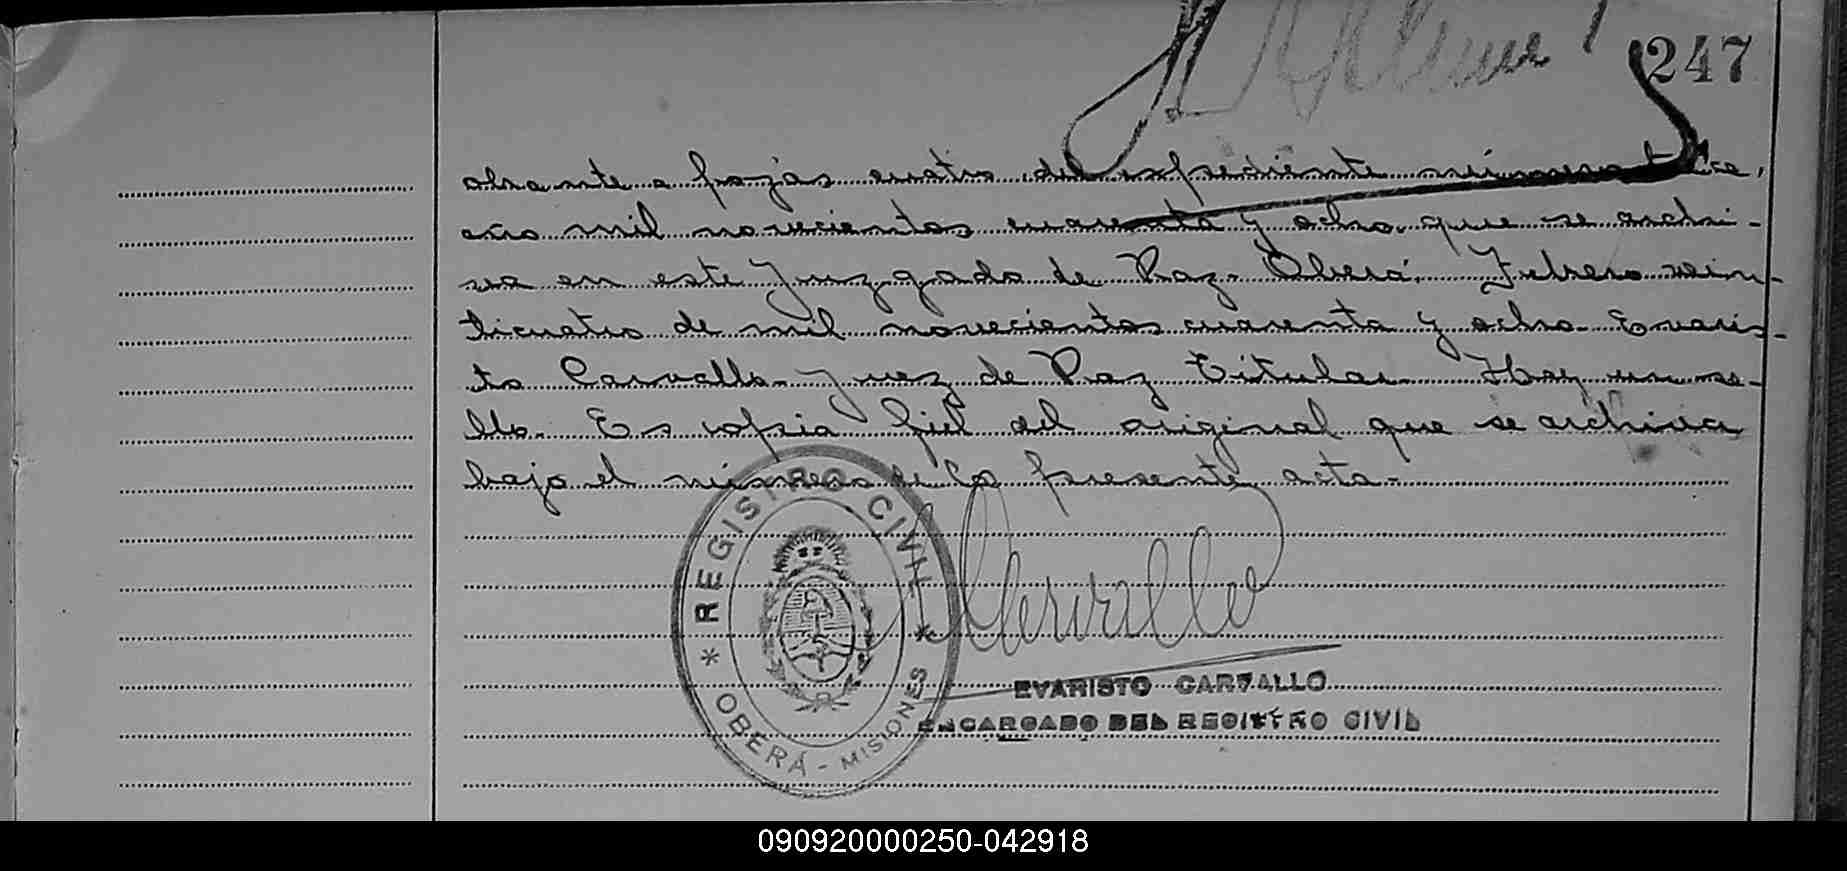 247
obrante a fojas cuatro del expediente número
año mil novecientos cuarenta y ocho que se archi-
va en este Juzgado de Paz. Oberá, Febrero vein-
ticuatro de mil novecientos cuarenta y ocho. Evaris-
to Carvallo. Juez de Paz Titular. Hay un se-
llo. Es copia fiel del original que se archiva
bajo el número de la presente acta.-
REGISTRO CIVIL
* OBERÁ - MISIONES *
EVARISTO CARVALLO
ENCARGADO DEL REGISTRO CIVIL
090920000250-042918